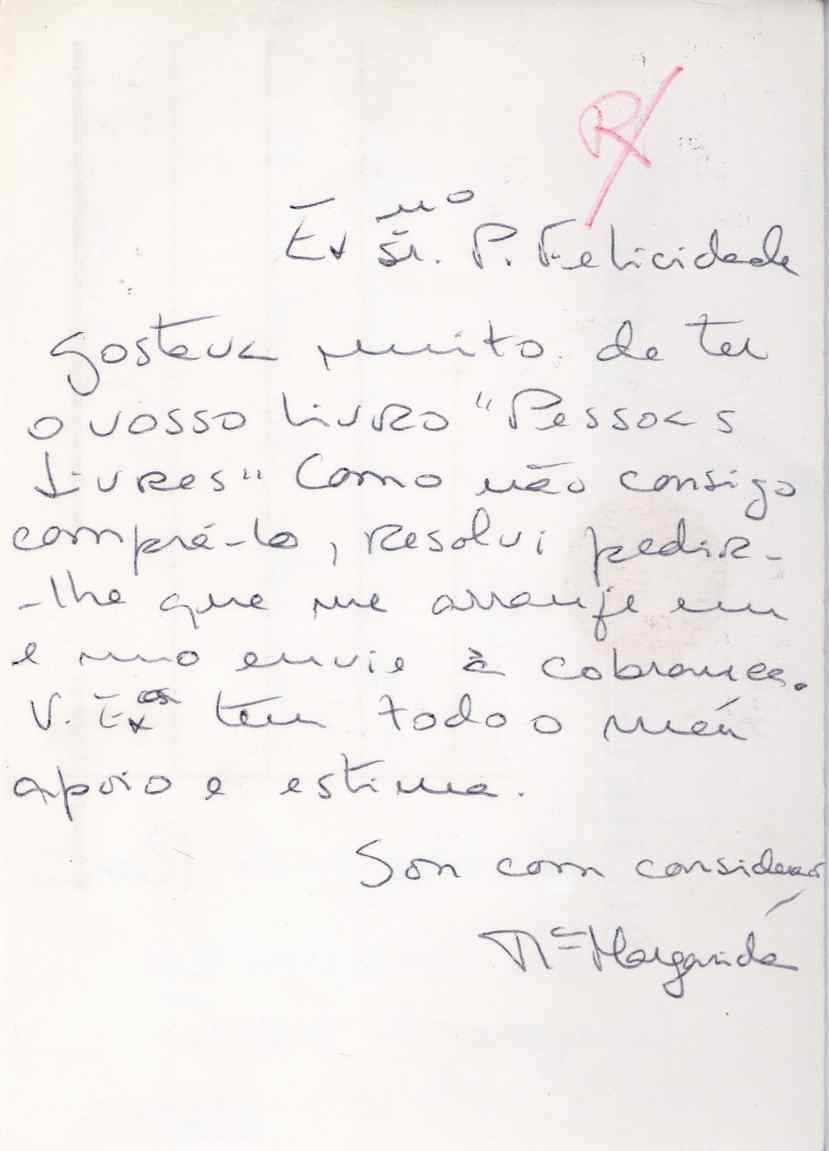 R/
Exmo Sr. P. Felicidade
gostava muito de ter
o vosso livro "Pessoas
Livres" Como não consigo
comprá-lo, resolvi pedir-
-lhe que me arranje um
e mo envie à cobrança.
V. Exas têm todo o meu
apoio e estima.
Sou com consideração
Mª Margarida